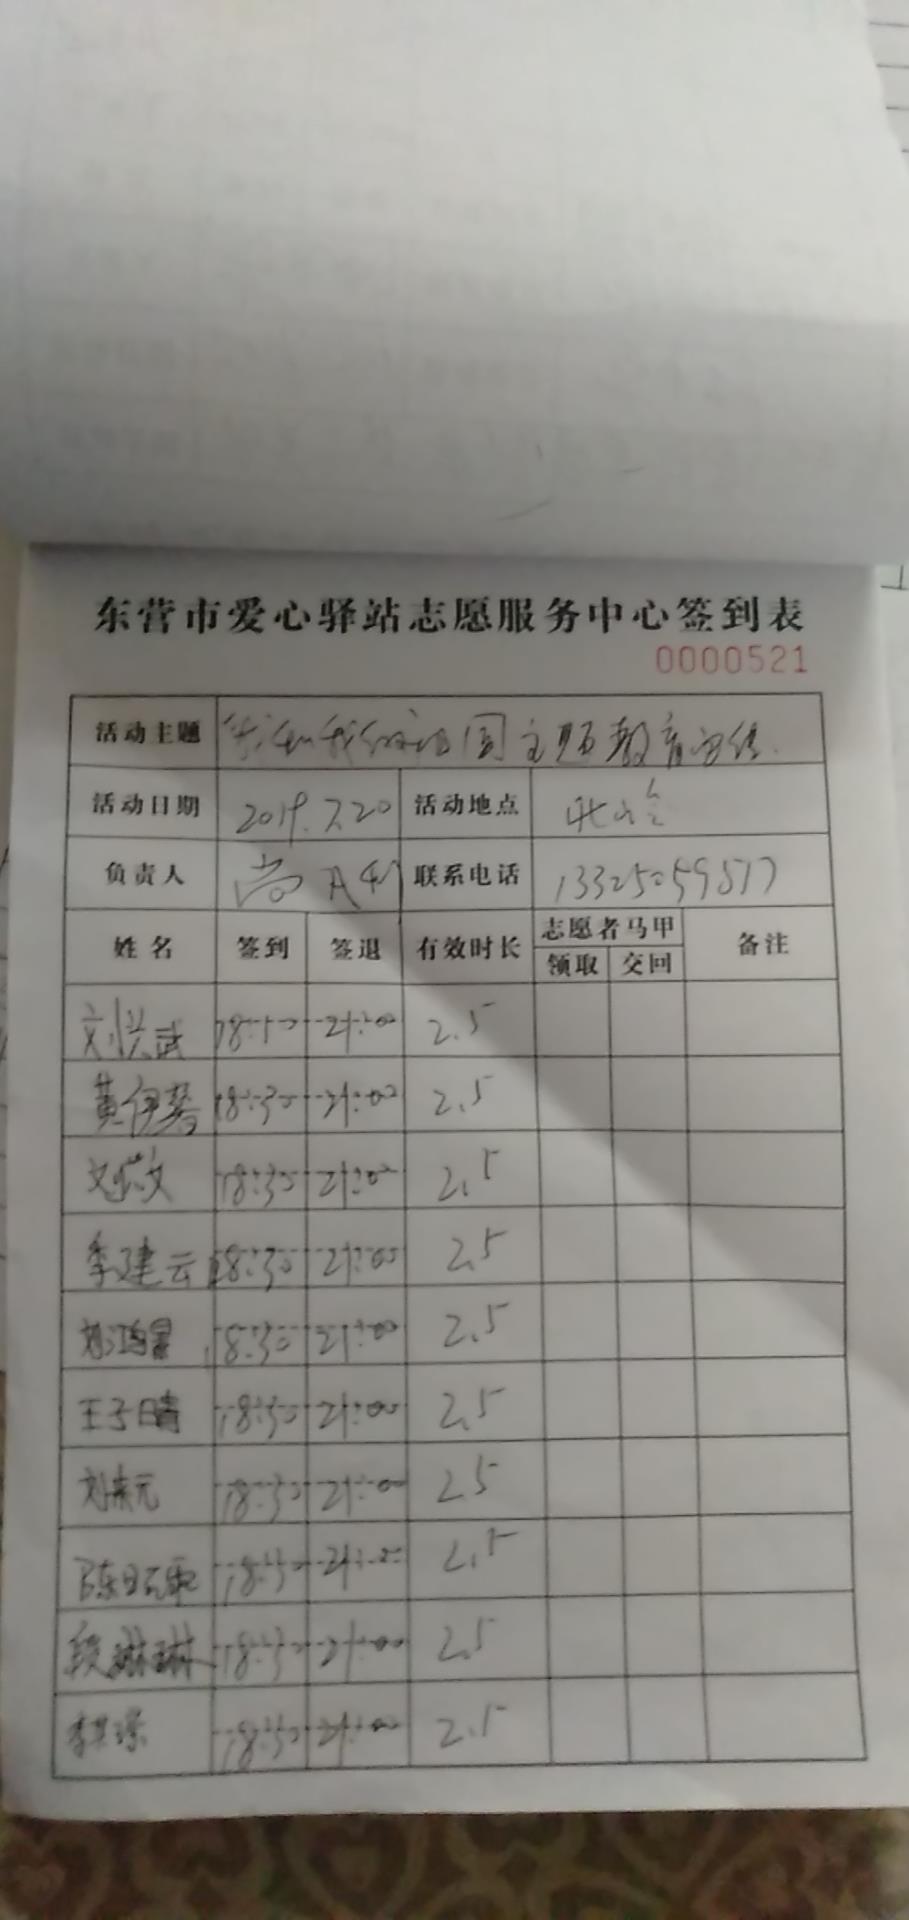 东营市爱心驿站志愿服务中心签到表
0000521
活动主题 我和我的祖国主题教育宣传
活动日期 2019.7.20 活动地点
负责人 尚 联系电话 13325059517
姓名 签到 签退 有效时长 志愿者马甲 备注
领取 交回
刘兴武 18:30 21:00 2.5
黄伊 18:30 21:00 2.5
文 18:30 21:00 2.5
李建云 18:30 21:00 2.5
刘鸿 18:30 21:00 2.5
王子晴 18:30 21:00 2.5
刘东元 18:30 21:00 2.5
陈 18:30 21:00 2.5
段琳琳 18:30 21:00 2.5
李 18:30 21:00 2.5